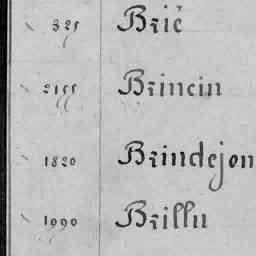 325 Brié
2155 Brincin
1820 Brindejon
1090 Brillu